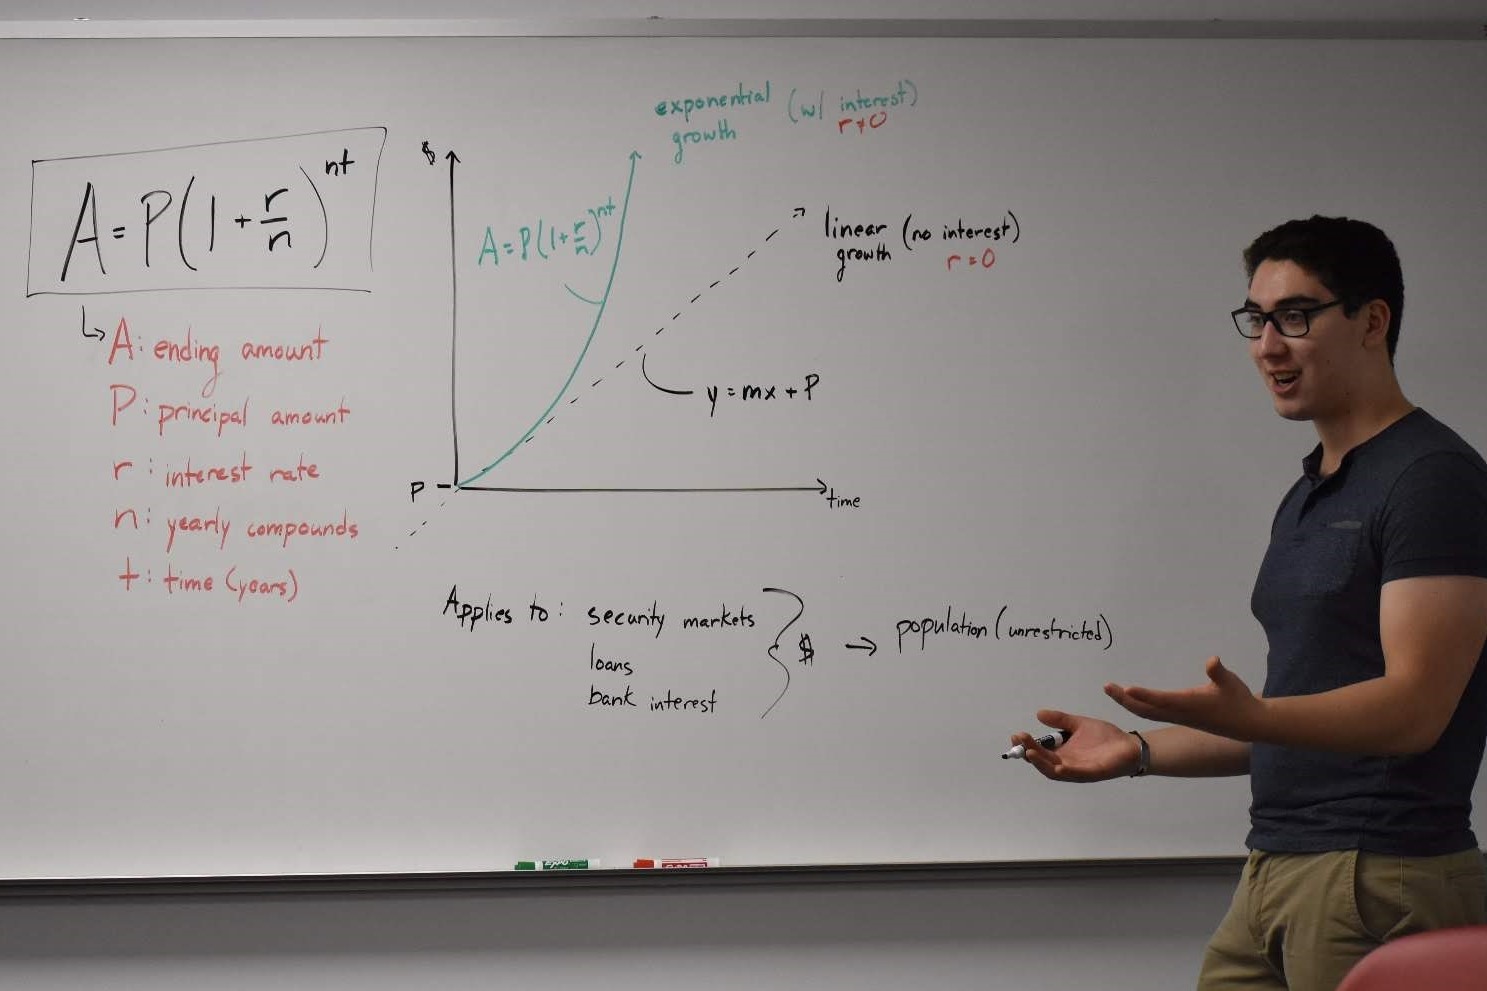 A = P(1 + r/n)^nt
A: ending amount
P: principal amount
r: interest rate
n: yearly compounds
t: time (years)
$
exponential (w/ interest)
growth r≠0
A = P(1 + r/n)^nt
linear (no interest)
growth r = 0
y = mx + P
P
time
Applies to: security markets
loans
bank interest
$ → population (unrestricted)
EXPO